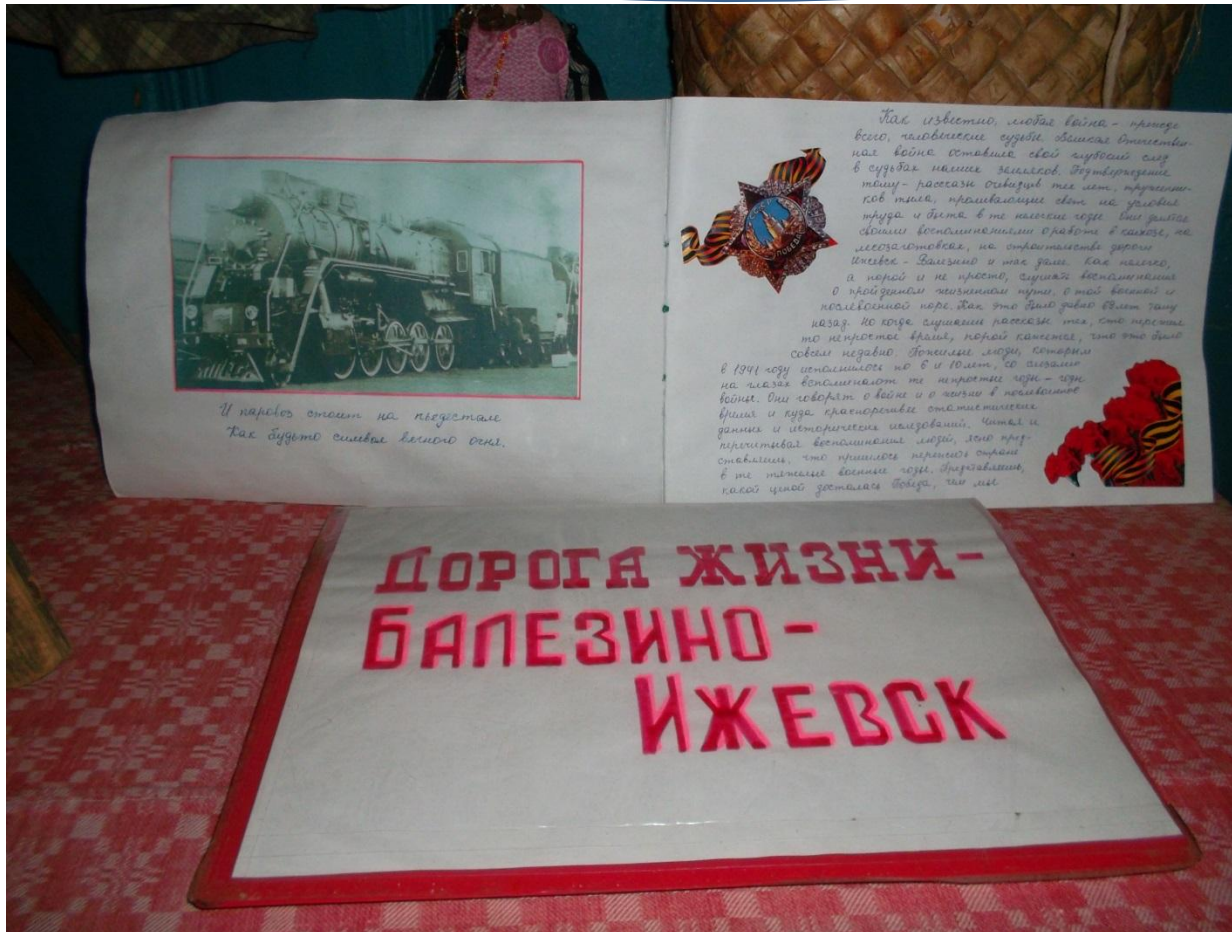 И паровоз стоит на пьедестале
Как будто символ вечного огня.
Как известно, любая война - прежде
всего, человеческие судьбы. Великая Отечествен-
ная война оставила свой глубокий след
в судьбах наших земляков. Подтверждение
тому - рассказы очевидцев тех лет, тружени-
ков тыла, проливающие свет на условия
труда и быта в те нелегкие годы. Они делятся
своими воспоминаниями о работе в колхозе, на
лесозаготовках, на строительстве дороги
Ижевск - Балезино и так далее. Как нелегко,
а порой и не просто, слушать воспоминания
о пройденном жизненном пути, о той военной и
послевоенной поре. Как это было давно лет тому
назад. Но когда слушаешь рассказы тех, кто пережил
то непростое время, порой кажется, что это было
совсем недавно. Пожилые люди, которым
в 1941 году исполнилось по 6 и 10 лет, со слезами
на глазах вспоминают те непростые годы - годы
войны. Они говорят о войне и о жизни в послевоенное
время и куда красноречивее статистические
данные и исторических исследований. Читая и
перечитывая воспоминания людей, ясно пред-
ставляешь, что пришлось пережить стране
в те тяжелые военные годы. Представляешь,
какой ценой досталась Победа, чем мы
ПОБЕДА
ДОРОГА ЖИЗНИ-
БАЛЕЗИНО-
ИЖЕВСК